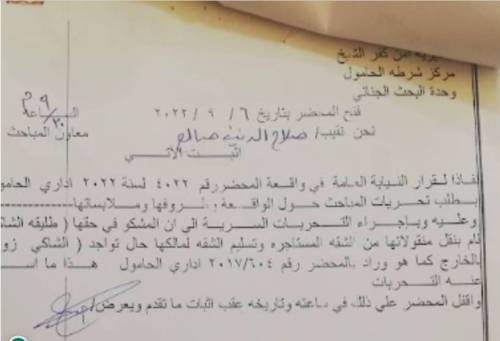 مديرية امن كفر الشيخ
مركز شرطه الحامول
وحدة البحث الجنائي
الساعة ٩/٣٠ م
فتح المحضر بتاريخ ٦ / ٩ / ٢٠٢٢
نحن نقيب/ صلاح الدين صالح معاون المباحث
اثبت الأتي
نفاذا لقرار النيابة العامة في واقعة المحضررقم ٤٠٢٢ لسنة ٢٠٢٢ اداري الحامول
بطلب تحريات المباحث حول الواقعة وظروفها وملابساتها
وعليه وبإجراء التحريات السرية الى ان المشكو في حقها ( طليقه الشاك
قام بنقل منقولاتها من الشقه المستاجره وتسليم الشقه لمالكها حال تواجد ( الشاكي زو
بالخارج كما هو وراد بالمحضر رقم ٢٠١٧/٦٠٤ اداري الحامول هذا ما اس
عنه التحريات
واقفل المحضر علي ذلك في ساعته وتاريخه عقب اثبات ما تقدم ويعرض/